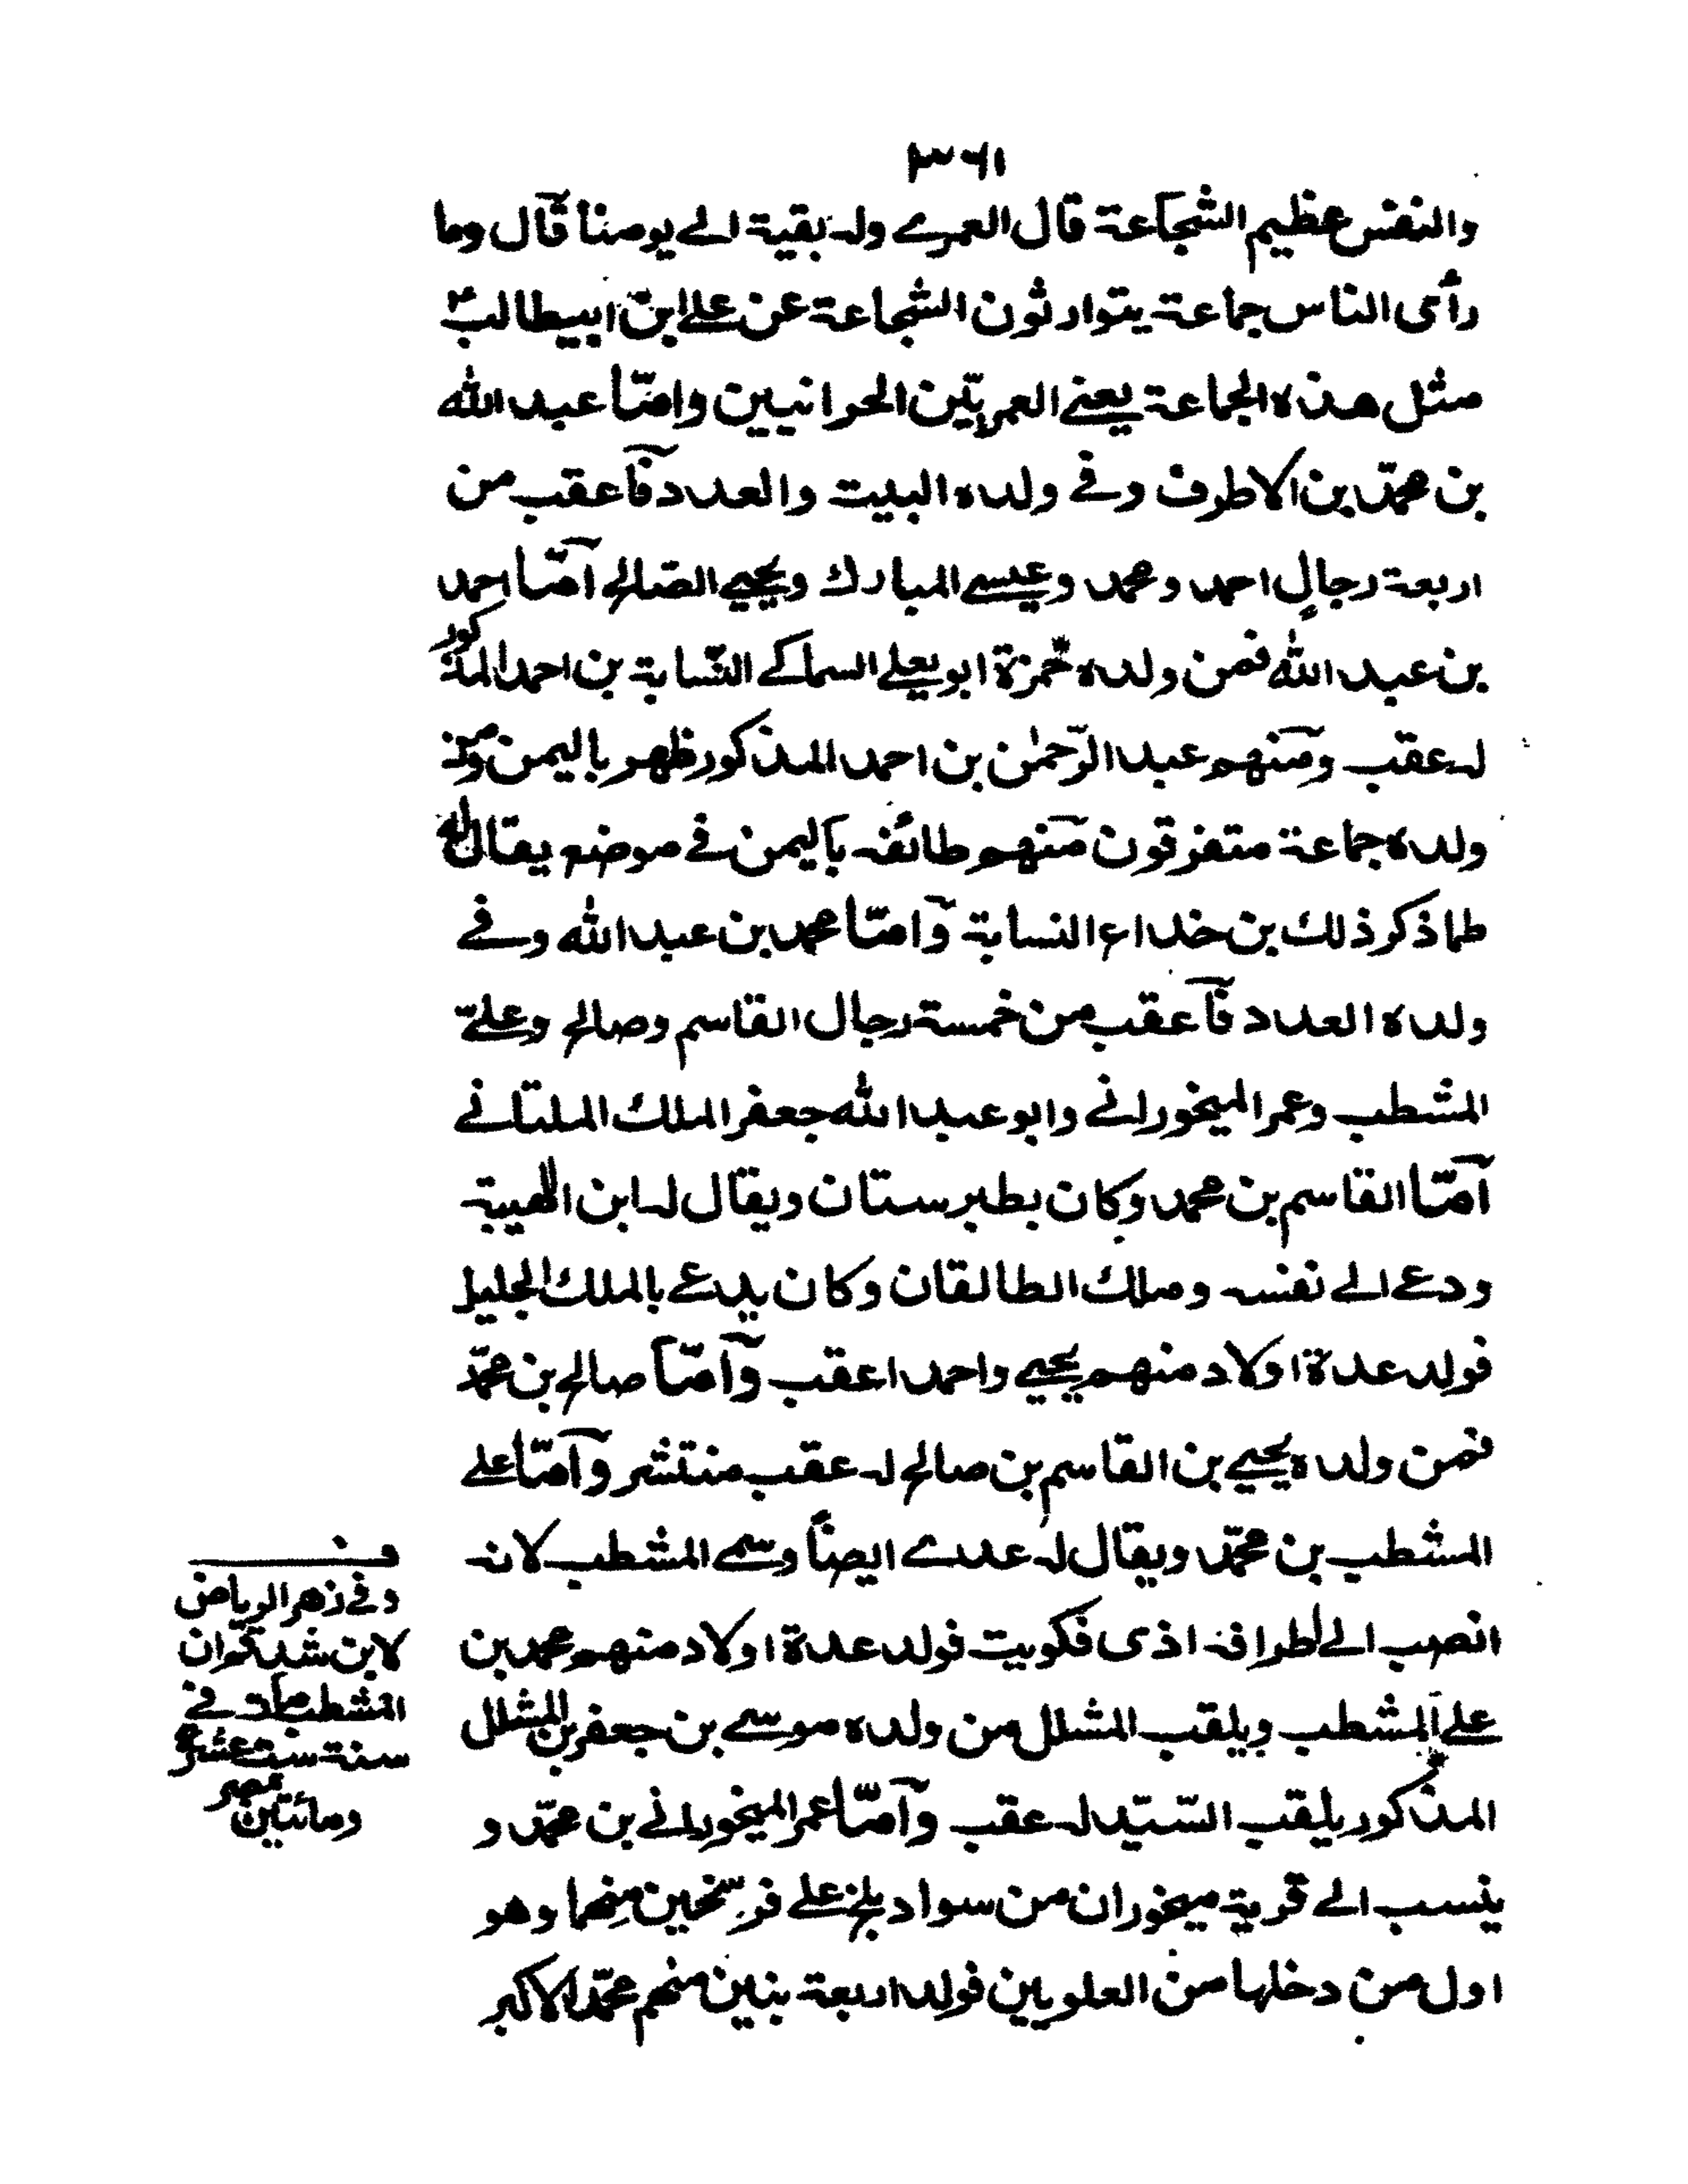 ٣٦١
والنفس عظيم الشجاعة قال العمرے وله بقية الے يومنا قال وما
رأى الناس جماعة يتوارثون الشجاعة عن علے ابن ابيطالب ع
مثل هذه الجماعة يعنے العمريّين الحرانيين وامّا عبد الله
بن محمّد بن الاطرف وفے ولده البيت والعدد فاعقب من
اربعة رجالٍ احمد ومحمد وعيسے المبارك ويحيے الصّالح امّا احمد
بن عبد الله فمن ولده حمزة ابو يعلے السماكے النّسابة بن احمد المذكور
له عقب ومنهم عبد الرّحمٰن بن احمد المذكور ظهر باليمن ومن
ولده جماعة متفرقون منهم طائفه باليمن فے موضع يقال له
طما ذكر ذلك بن خداع النسابة وامّا محمد بن عبد الله وفے
ولده العدد فاعقب من خمسة رجال القاسم وصالح وعلےّ
المشطب وعمر الميخورانے وابو عبد الله جعفر الملك الملتانے
امّا القاسم بن محمد وكان بطبرستان ويقال له ابن اللهيبة
ودعے الے نفسه وملك الطالقان وكان يدعے بالملك الجليل
فولد عدة اولاد منهم يحيے واحمد اعقب وامّا صالح بن محمّد
فمن ولده يحيے بن القاسم بن صالح له عقب منتشر وامّا علے
المشطب بن محمّد ويقال له عددے ايضاً وسمے المشطب لانه
انصب الے اطرافه اذى فكويت فولد عدة اولاد منهم محمد بن
علے المشطب ويلقب المشلل من ولده موسے بن جعفر بن المشلل
المذكور يلقب السّيّد له عقب وامّا عمر الميخورانے بن محمّد و
ينسب الے قرية ميخوران من سواد بلخ علے فرسخين منها وهو
اول من دخلها من العلويين فولد اربعة بنين منهم محمّد الاكبر
وفے زهر الرياض
لابن شدقم ان
المشطب مات فے
سنة ست عشر
ومائتين بمصر